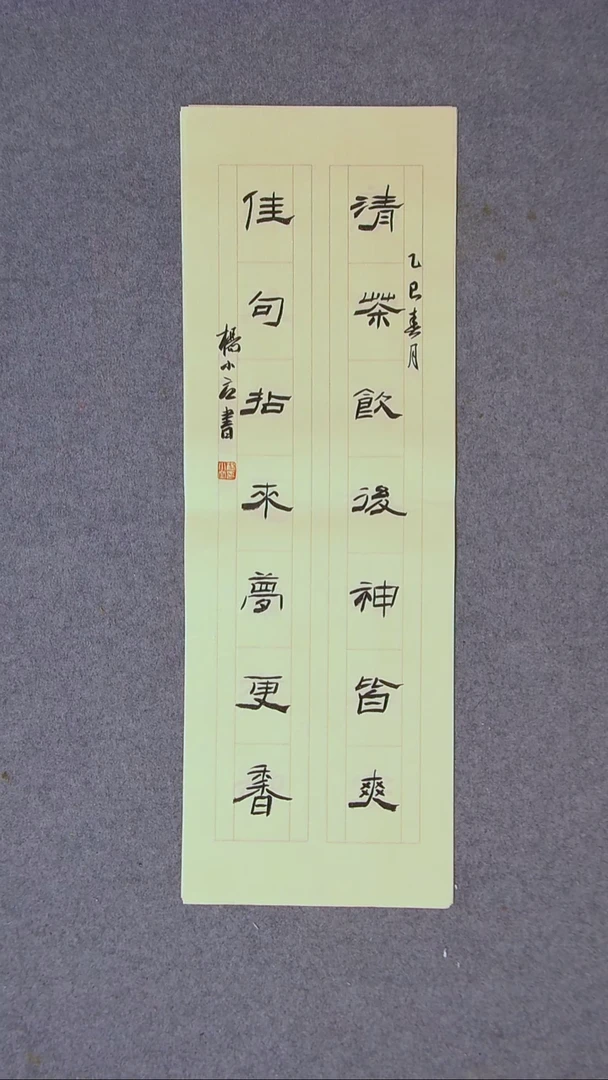 乙巳春月
清茶飲後神皆爽
佳句拈來夢更香
楊小
書